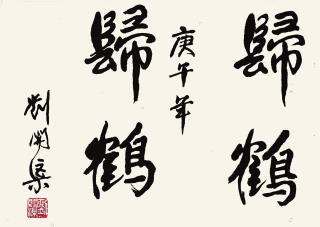 歸鶴
庚午年
歸鶴
劉開渠